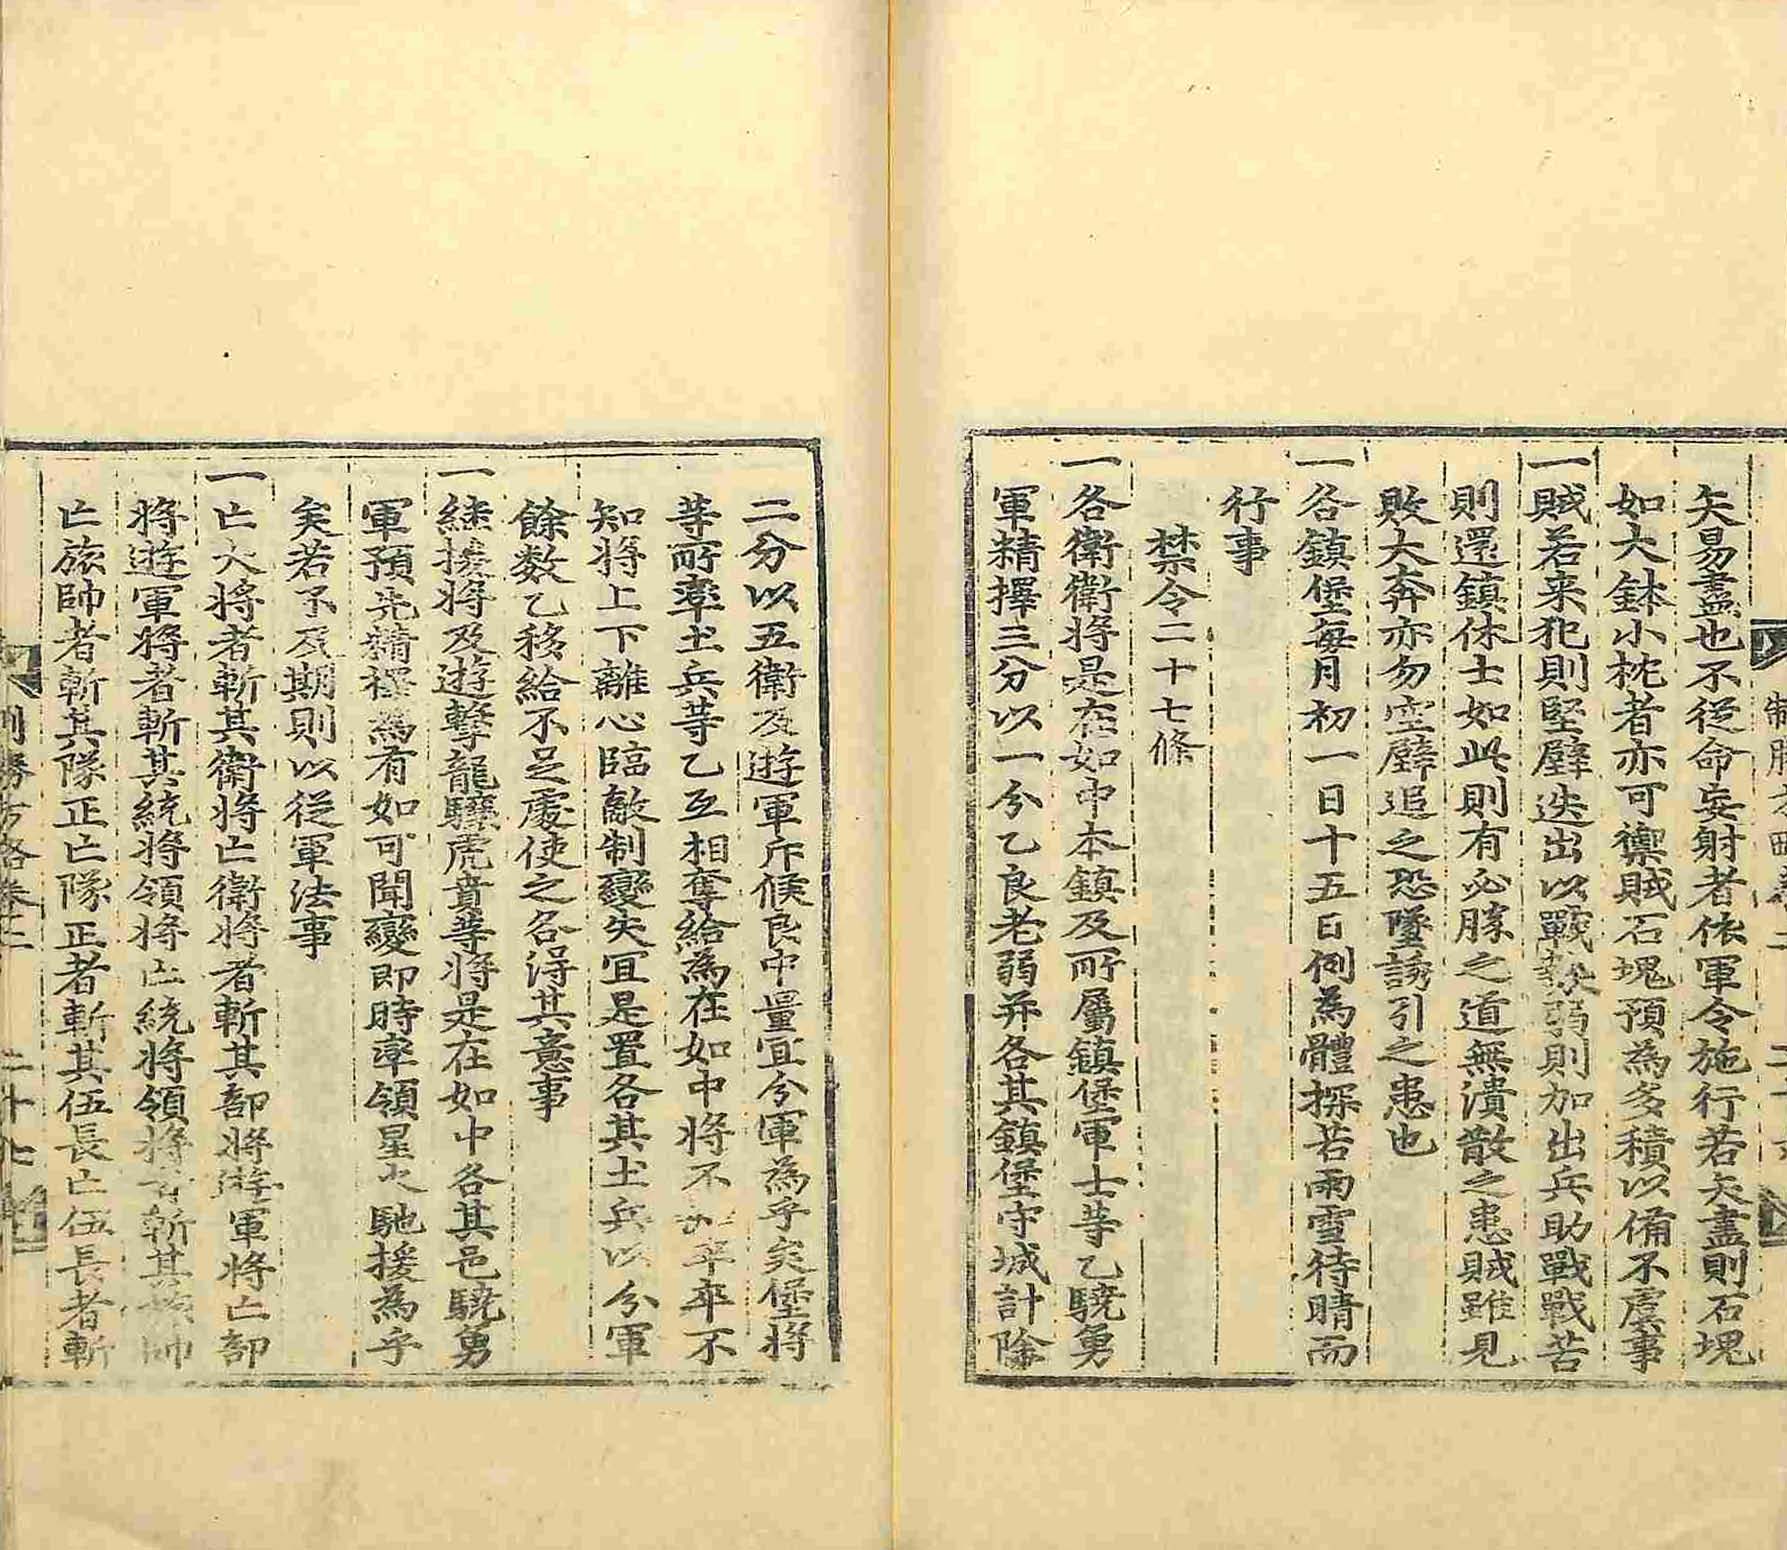 制勝方略卷二 二十六
矢易盡也不從命妄射者依軍令施行若矢盡則石塊
如大鉢小枕者亦可禦賊石塊預為多積以備不虞事
一賊若来犯則堅壁迭出以戰弱則加出兵助戰戰苦
則還鎮休士如此則有必勝之道無潰散之患賊雖見
敗大奔亦勿空壁追之恐墮誘引之患也
一各鎮堡每月初一日十五日例為體探若雨雪待晴而
行事
禁令二十七條
一各衛衛將是在如中本鎮及所屬鎮堡軍士等乙驍勇
軍精擇三分以一分乙良老弱并各其鎮堡守城計除
二分以五衛及遊軍斥候良中量宜分軍為乎矣堡將
等所率土兵等乙互相奪給為在如中將不知卒卒不
知將上下離心臨敵制變失宜是置各其土兵以分軍
餘數乙移給不足處使之各得其意事
一繼援將及遊擊龍驤虎賁等將是在如中各其邑驍勇
軍預先精擇為有如可聞變即時率領星火馳援為乎
矣若不及期則以從軍法事
一亡大將者斬其衛將亡衛將者斬其部將遊軍將亡部
將遊軍將者斬其統將領將亡統將領將者斬其旅帥
亡旅帥者斬其隊正亡隊正者斬其伍長亡伍長者斬
制勝方略卷二 二十七